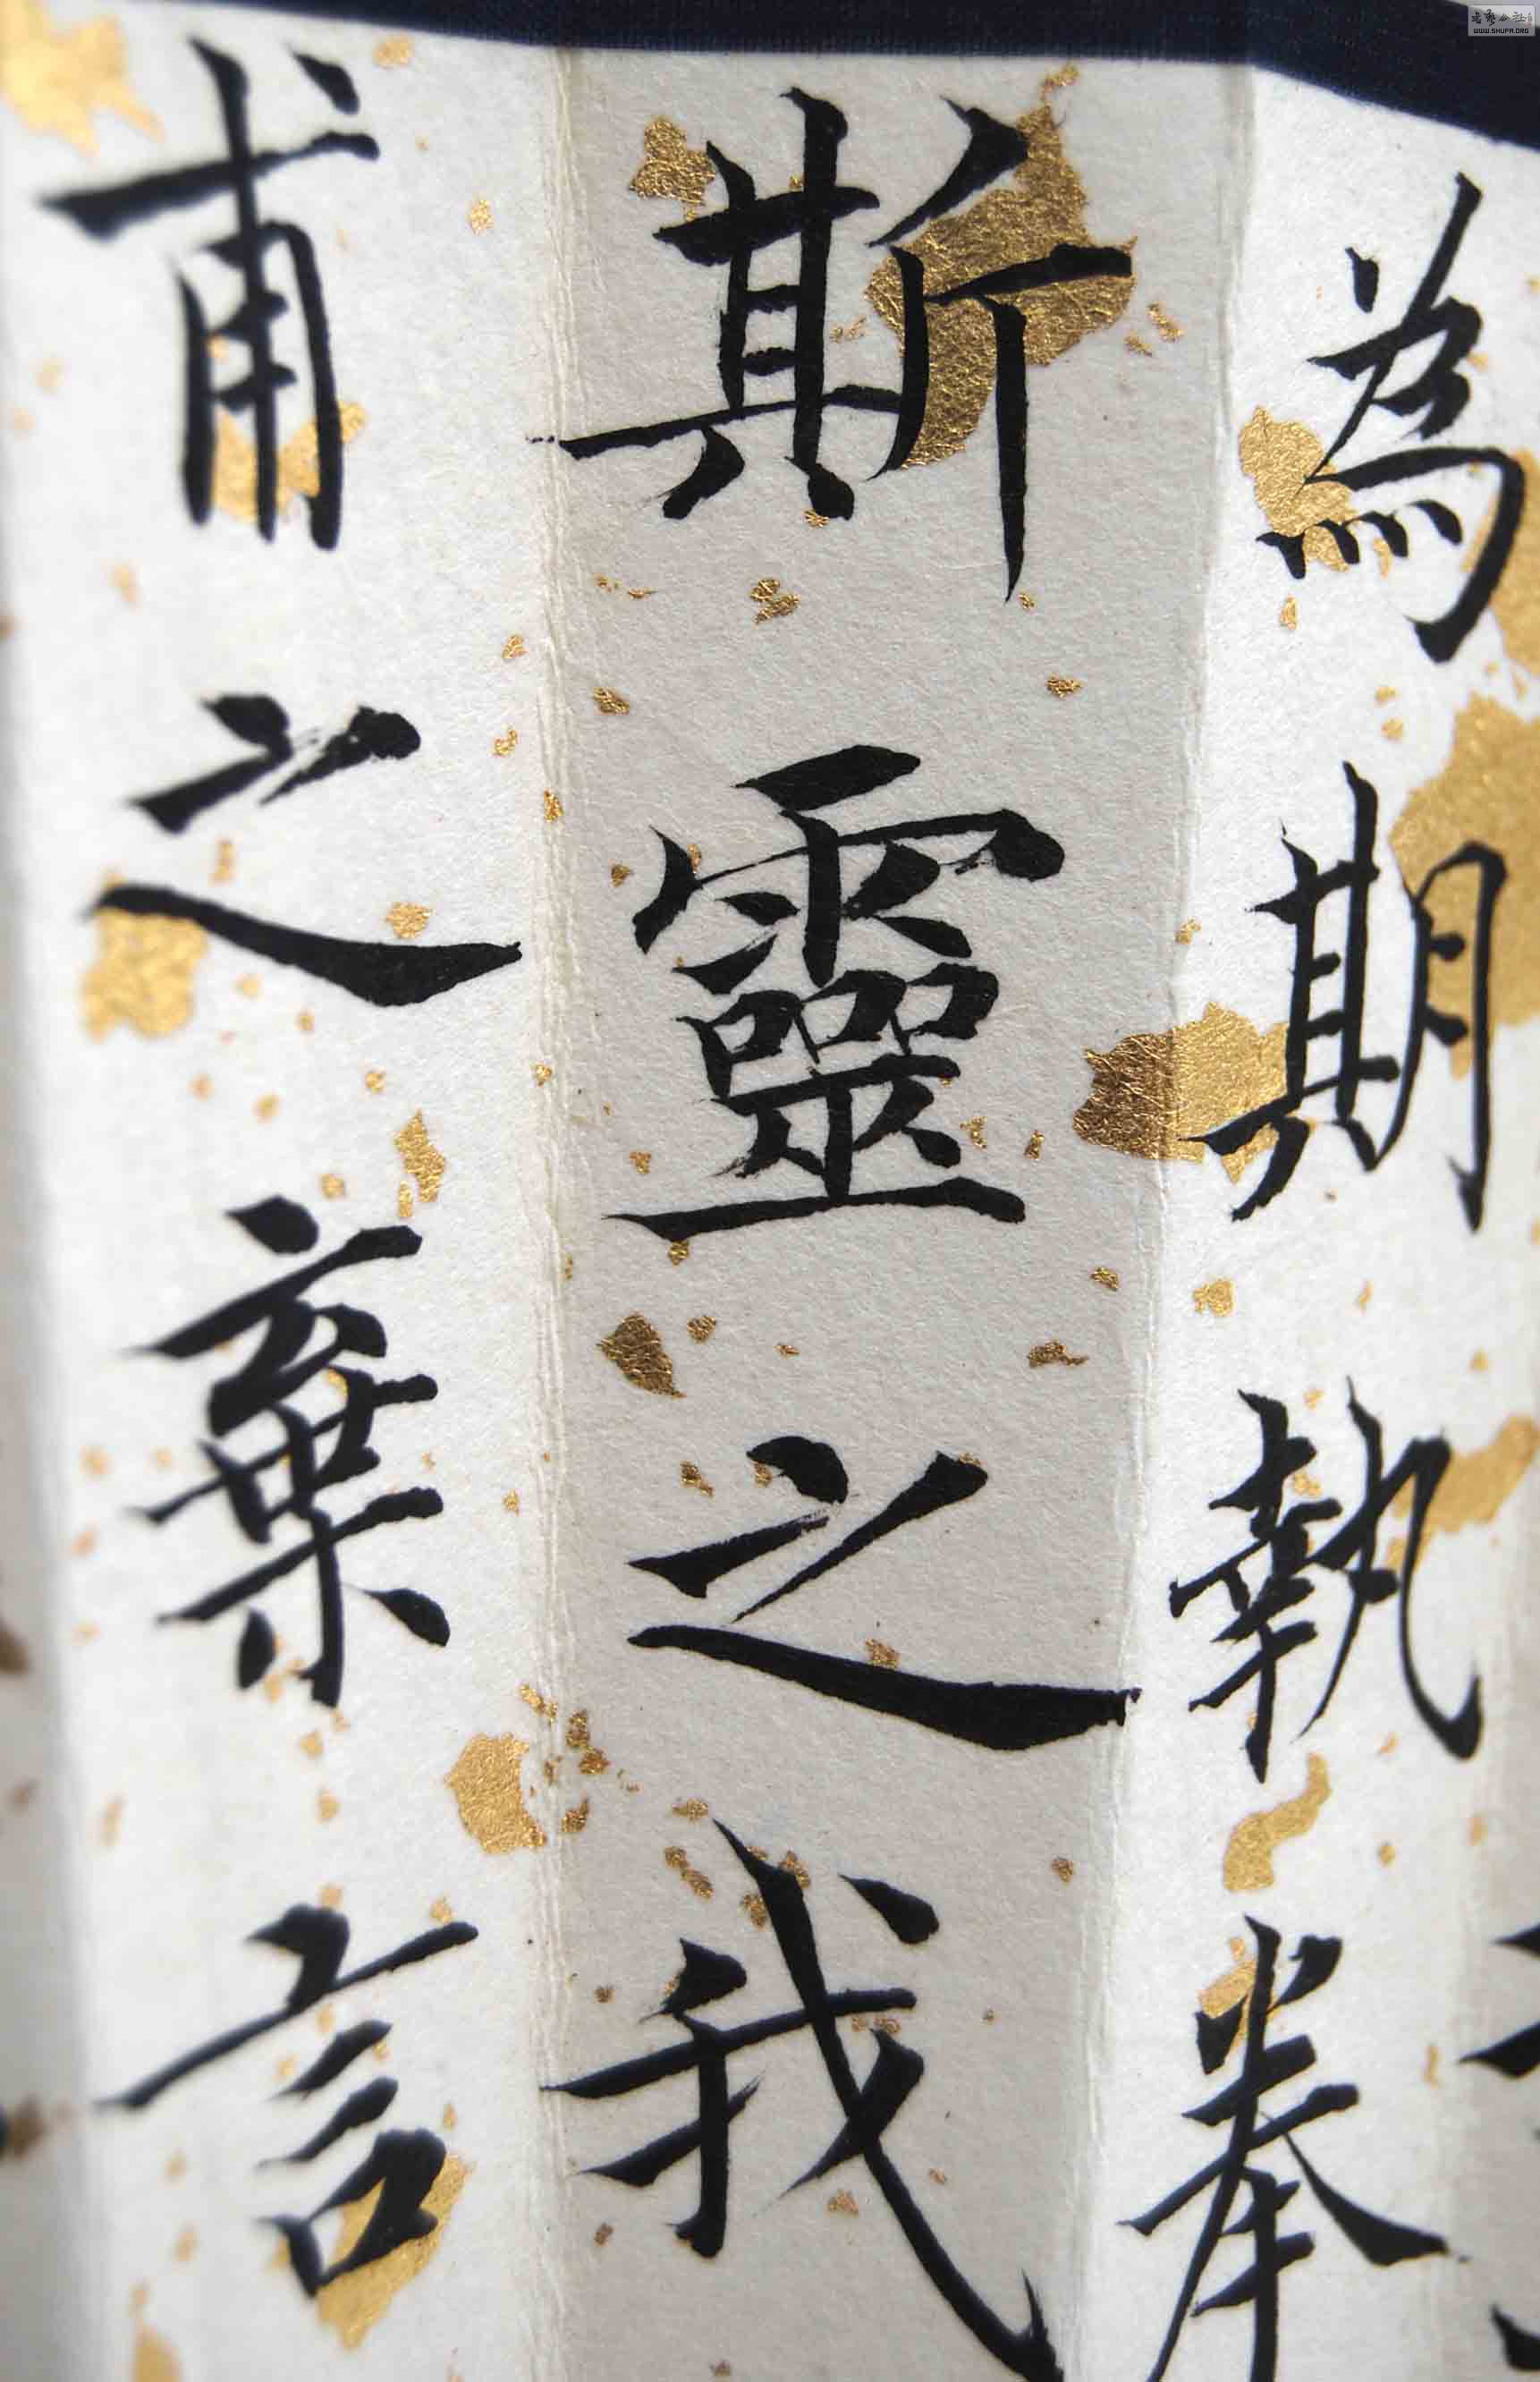 為期執眷
斯靈之我
甫之棄言
WWW.SHUFA.ORG